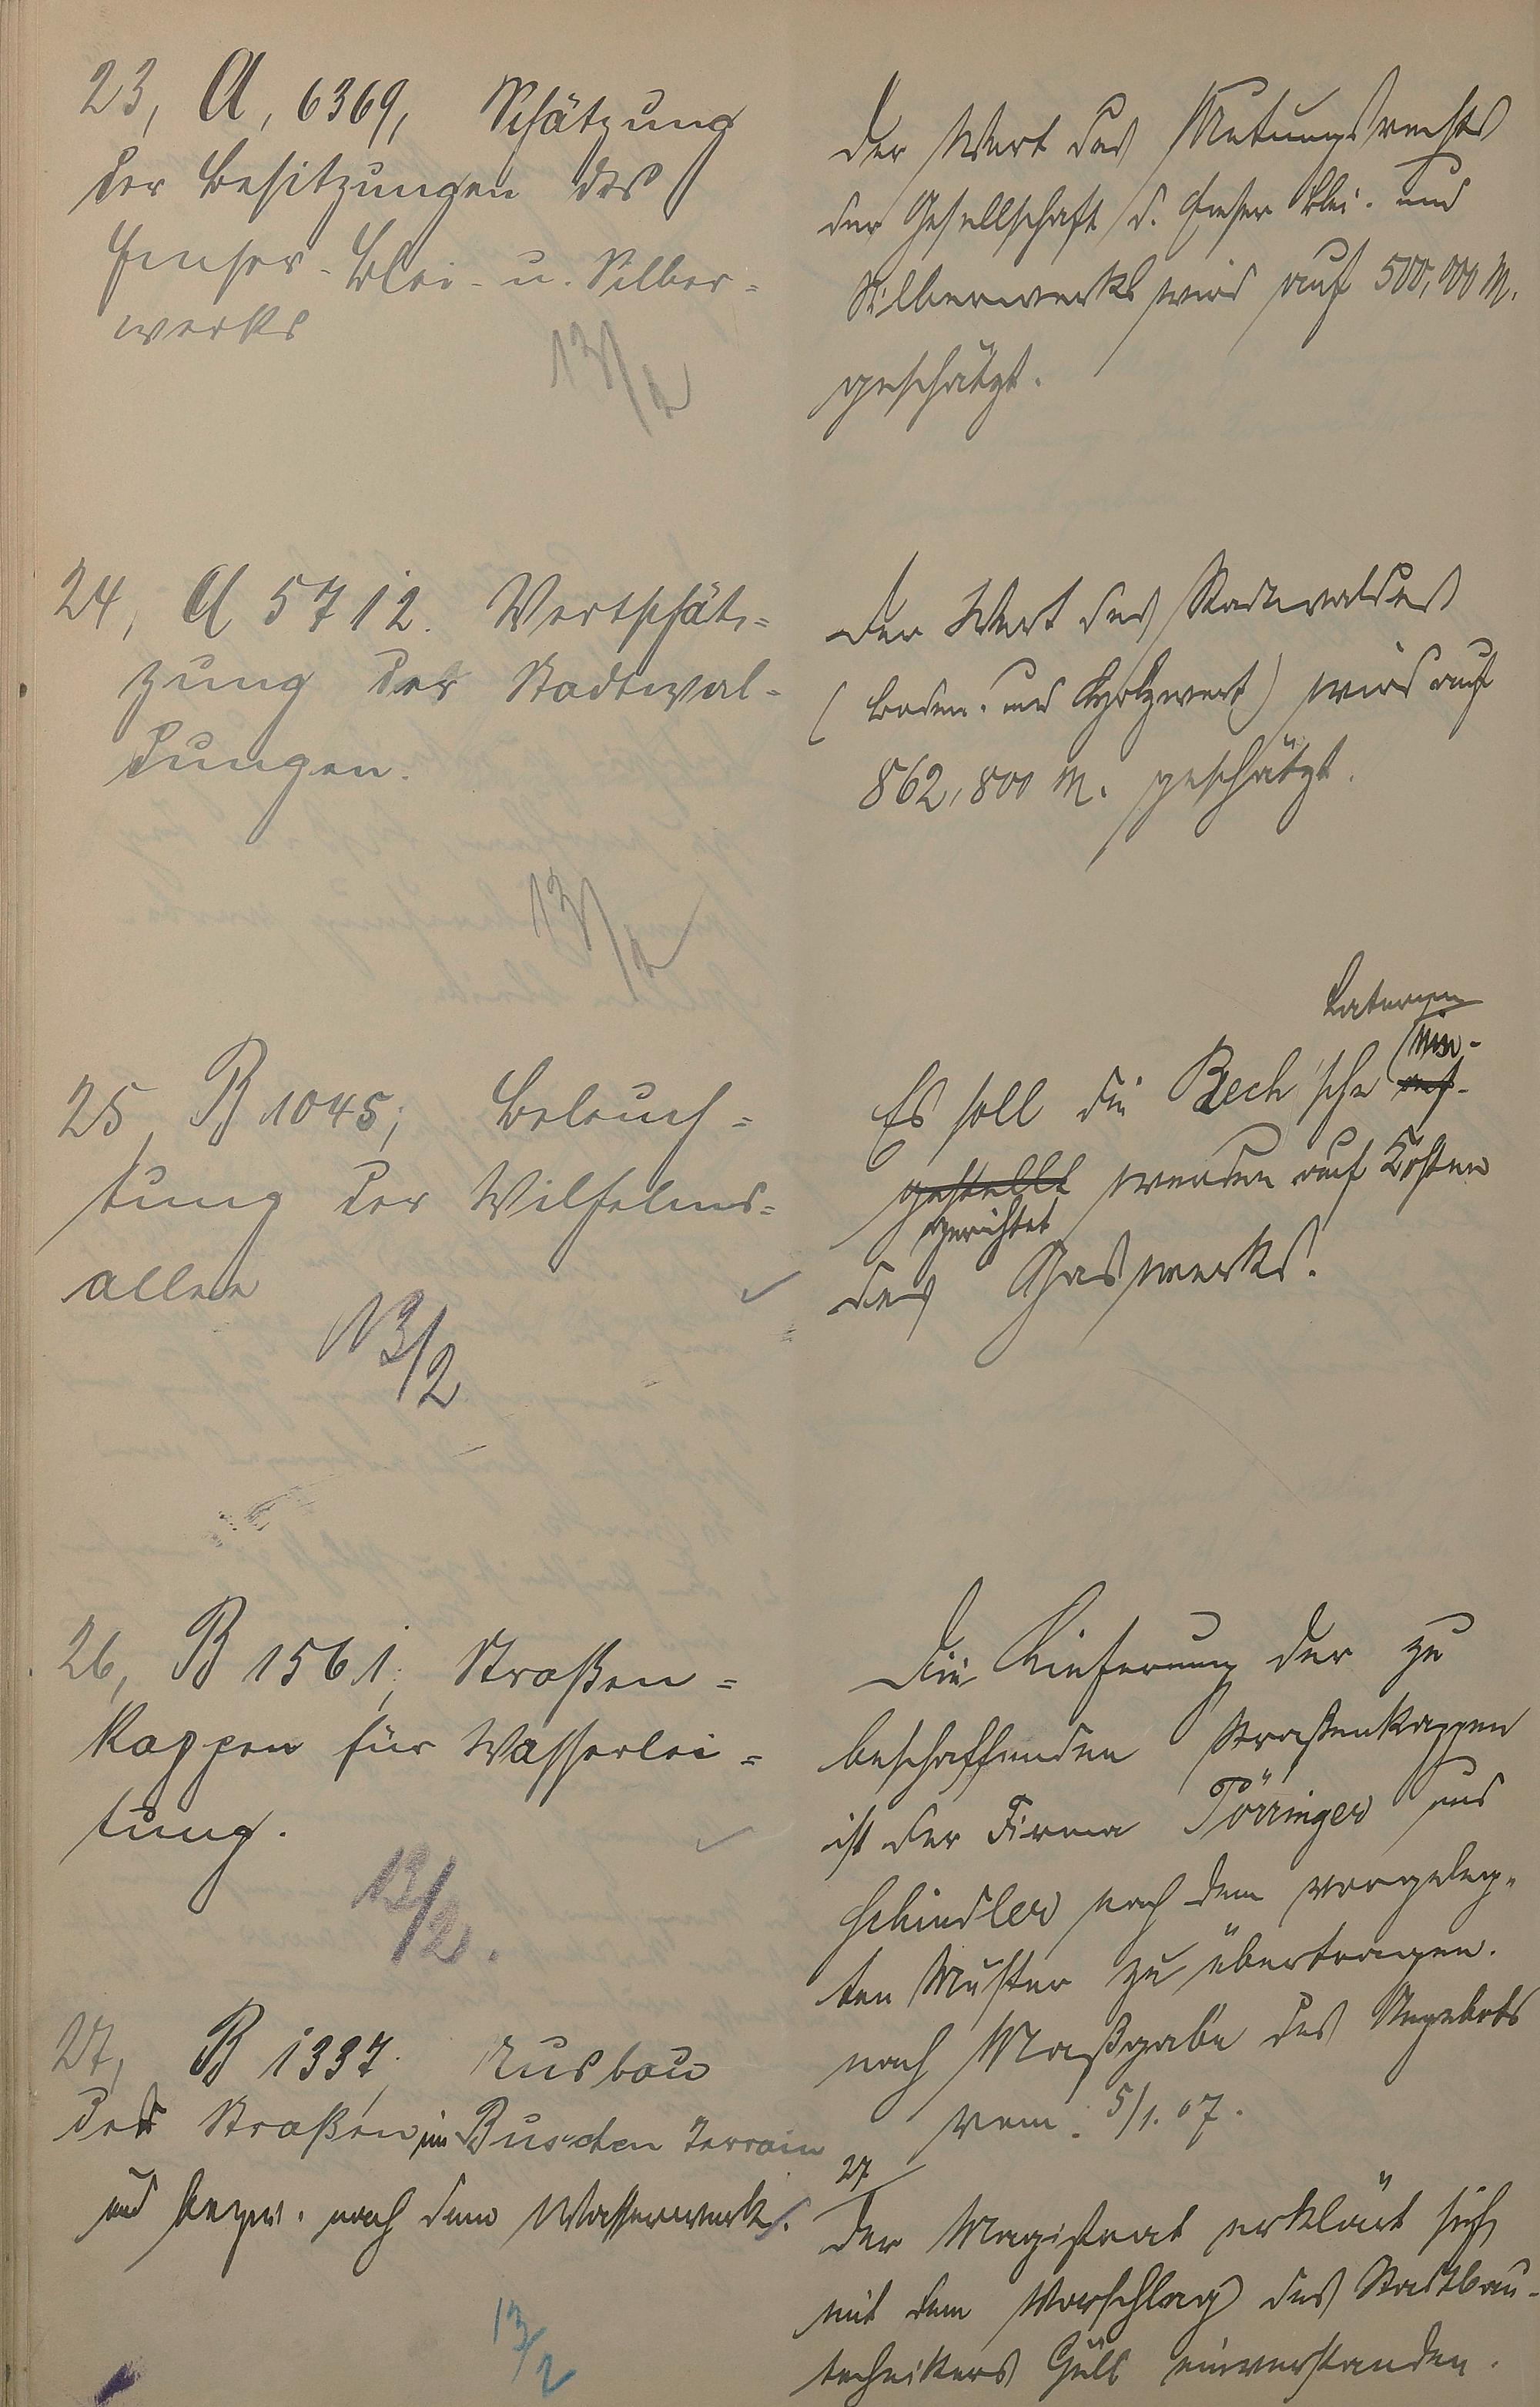 23, A, 6369, Schätzung
der Besitzungen des
Emser-Blei- u. Silber-
werks
13/2
Der Wert des Mutungsrechts
der Gesellschaft d. Emser Blei- und
Silberwerks wird auf 500,000 M.
geschätzt.
24, A 5712. Wertschät-
zung der Stadtwal-
dungen.
13/2
Der Wert des Stadtwaldes
(Boden- und Holzwert) wird auf
862,800 M. geschätzt.
25, B 1045; Beleuch-
tung der Wilhelms-
allee
13/2
Laterne
Es soll die Bech'sche auf-
gestellt werden auf Kosten
gerichtet
des Gaswerks.
26, B 1561; Straßen-
kappen für Wasserlei-
tung.
13/2.
Die Lieferung der zu
beschaffenden Straßenkappen
ist der Firma Törringer und
Schindler nach dem vorgeleg-
ten Muster zu übertragen.
nach Maßgabe des Angebots
vom 5/1.07.
27, B 1337; Ausbau
der Straßen im Buschen Terrain
und bezw. nach dem Wasserwerk.
13/2
27
Der Magistrat erklärt sich
mit dem Vorschlag des Stadtbau-
technikers Güll einverstanden.